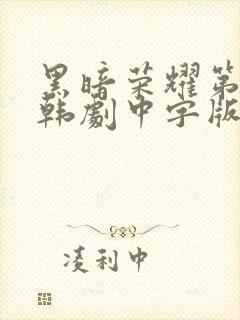 黑暗荣耀第
韩劇中字版
凌利中